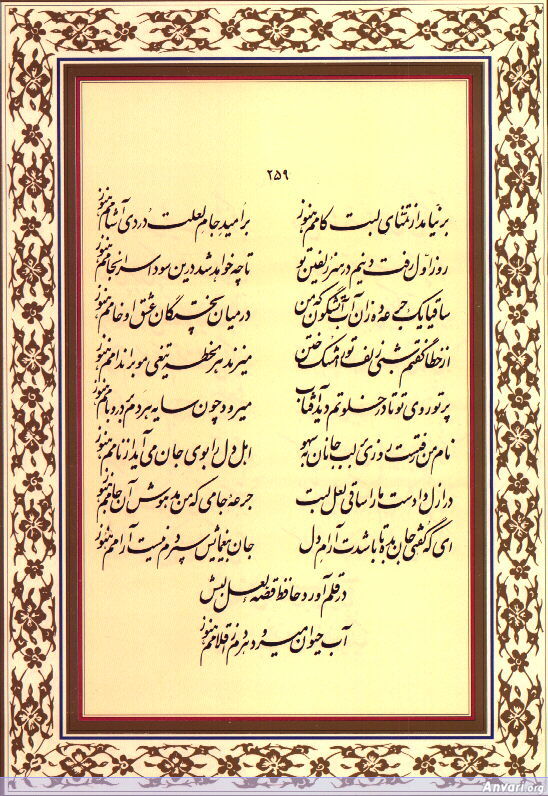 ۲۵۹
برنیامد از تمنای لبت کامم هنوز بر امید جام لعلت دردی آشامم هنوز
روز اول رفت دینم در سر زلفین تو تا چه خواهد شد درین سودا سرانجامم هنوز
ساقیا یک جرعه ده زان آب آتشگون که من در میان پختگان عشق او خامم هنوز
از خطا گفتم شبی زلف تو را مشک ختن میزند هر لحظه تیغی مو بر اندامم هنوز
پرتو روی تو تا در خلوتم دید آفتاب میرود چون سایه هر دم بر در و بامم هنوز
نام من رفتست روزی بر لب جانان به سهو اهل دل را بوی جان می آید از نامم هنوز
در ازل دادست ما را ساقی لعل لبت جرعه جامی که من مدهوش آن جامم هنوز
ای که گفتی جان بده تا باشدت آرام دل جان به غمهایش سپردم نیست آرامم هنوز
در قلم آورد حافظ قصه لعل لبش
آب حیوان میرود هر دم ز اقلامم هنوز
Anvari.org